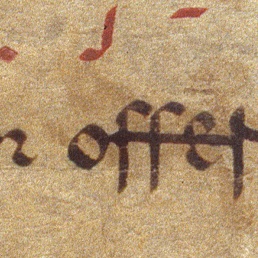 n offe